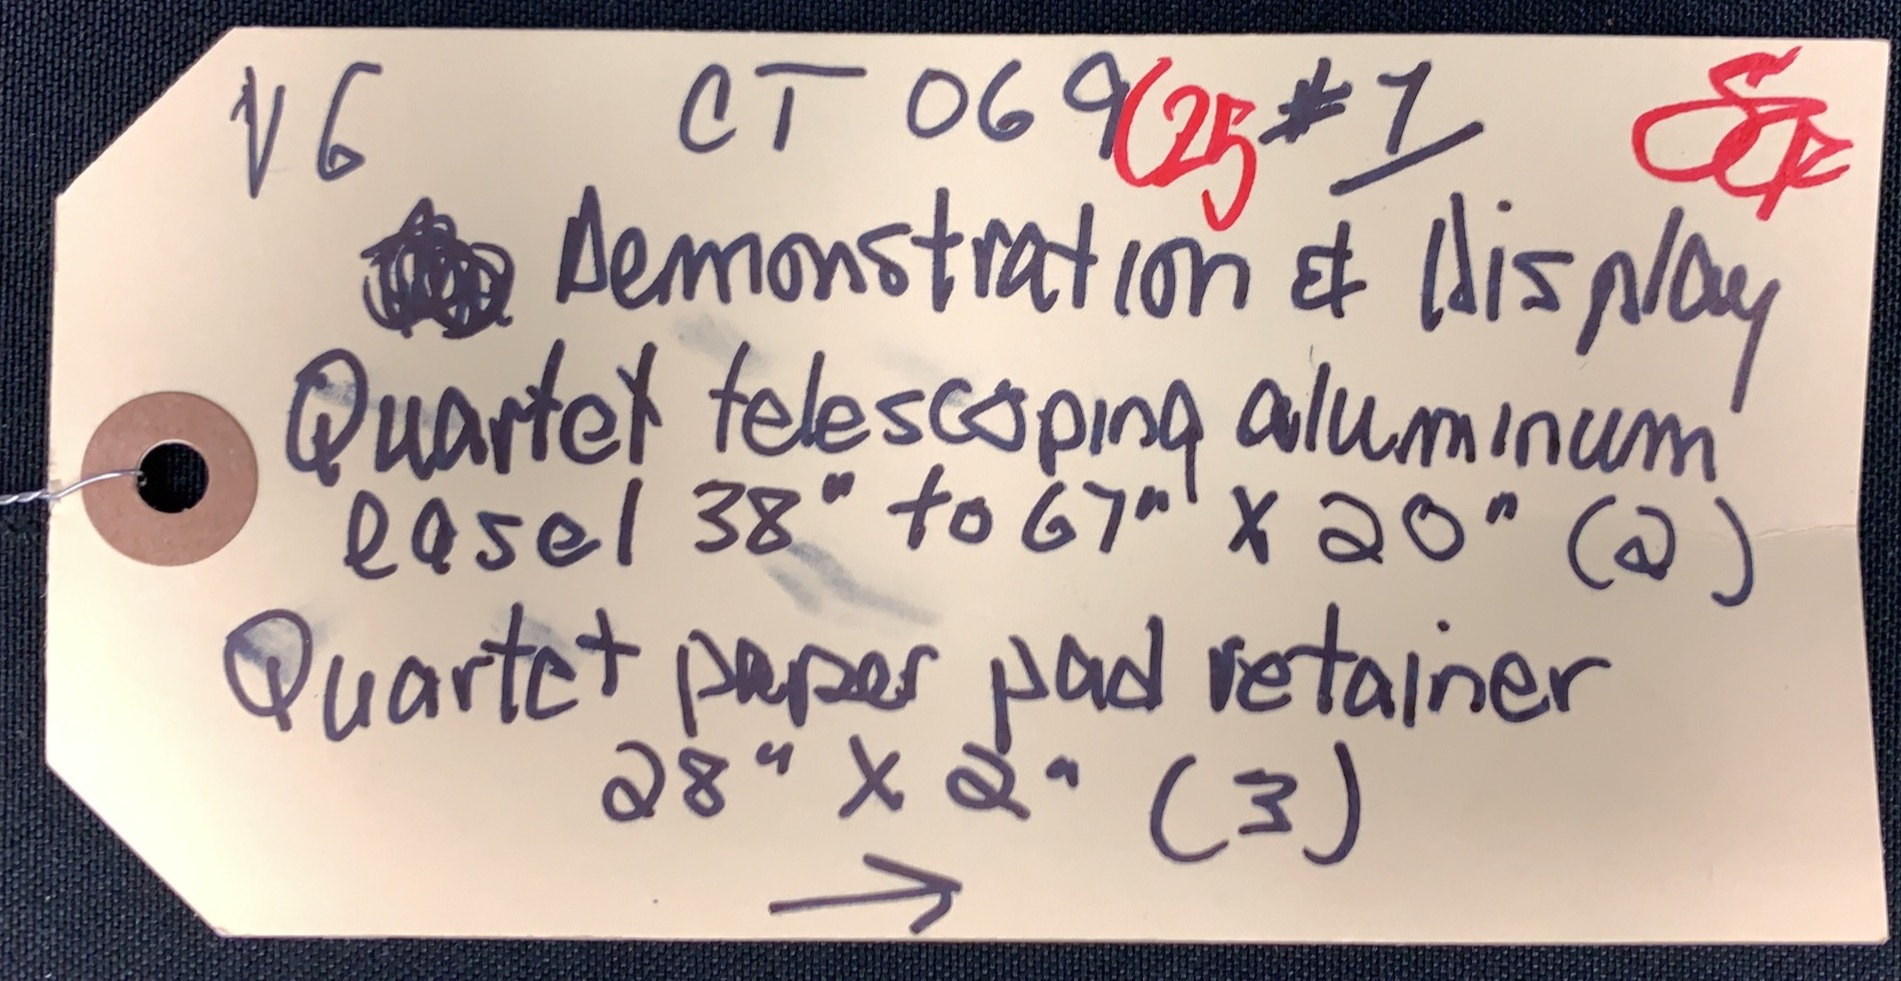 V6 CT 069 (25 #7
Demonstration & Display
Quartet telescoping aluminum
easel 38" to 67" X 20" (2)
Quartet paper pad retainer
28" X 2" (3)
→